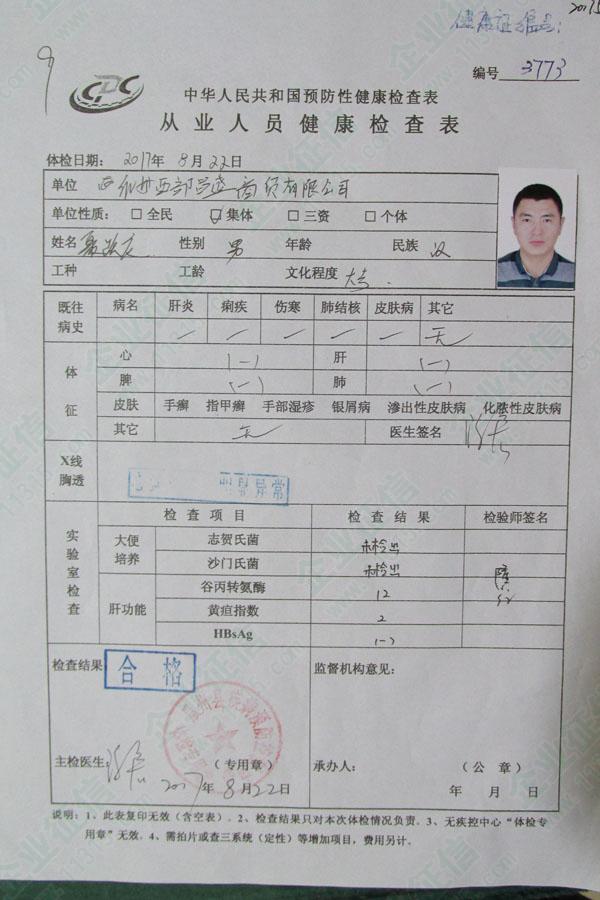 2017.5
健康证编号:
编号 3773
CDC
中华人民共和国预防性健康检查表
从业人员健康检查表
体检日期: 2017年 8月22日
单位 西部 商贸有限公司
单位性质: □ 全民 ☑ 集体 □ 三资 □ 个体
姓名 性别 男 年龄 民族 汉
工种 工龄 文化程度 大专.
既往病史 病名 肝炎 痢疾 伤寒 肺结核 皮肤病 其它
— — — — — 无
体征 心 (一) 肝 (一)
脾 (一) 肺 (一)
皮肤 手癣 指甲癣 手部湿疹 银屑病 渗出性皮肤病 化脓性皮肤病
其它 无 医生签名
X线胸透 异常
实验室检查 检查项目 检查结果 检验师签名
大便培养 志贺氏菌 未检出
沙门氏菌 未检出
肝功能 谷丙转氨酶 12
黄疸指数 2
HBsAg (一)
检查结果 合格 监督机构意见:
主检医生: (专用章) 承办人: (公章)
2017年8月22日 年 月 日
说明: 1、此表复印无效(含空表)。2、检查结果只对本次体检情况负责。3、无疾控中心“体检专
用章”无效。4、需拍片或查三系统(定性)等增加项目,费用另计.